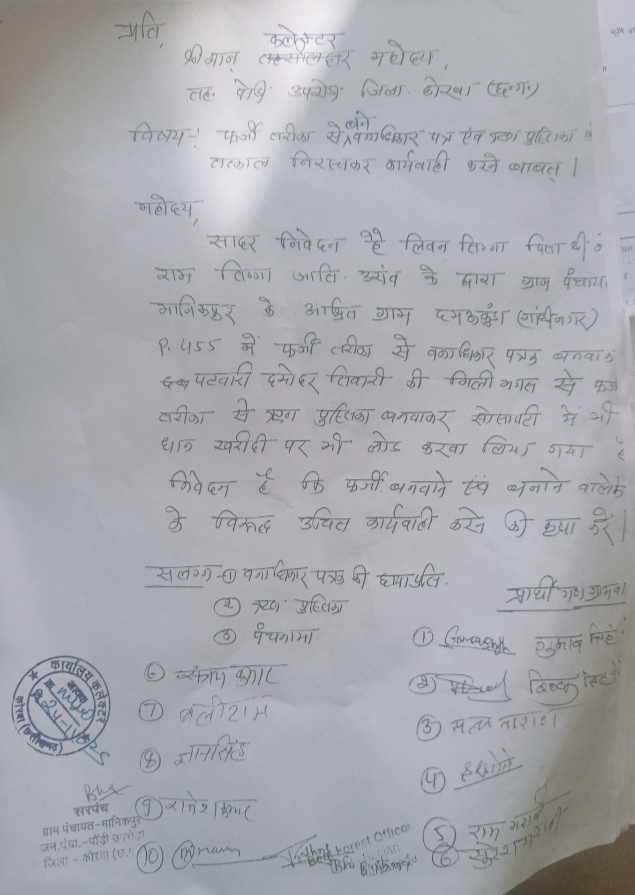 प्रति,
कलेक्टर
श्रीमान् महोदय,
तह. पोड़ी उपरोड़ा जिला- कोरबा (छ.ग.)
विषय:- फर्जी तरीका से बने वनाधिकार पत्र एवं ऋण पुस्तिका
तत्काल निरस्तकर कार्यवाही करने बाबत् ।
महोदय,
सादर निवेदन है लिवन तिग्गा पिता श्री
राम तिग्गा जाति- उरांव के द्वारा ग्राम पंचाय
मानिकपुर के आश्रित ग्राम दमऊकुंडा (गांधीनगर)
P. 455 में फर्जी तरीका से वनाधिकार पत्रक बनवाक
पटवारी दमोदर तिवारी की मिली भगत से फर्ज
तरीका से ऋण पुस्तिका बनवाकर सोसायटी में भी
धान खरीदी पर भी लोड करवा लिया गया है
निवेदन है कि फर्जी बनवाने एवं बनाने वाले
के विरूद्ध उचित कार्यवाही करने की कृपा करें |
सलग्न - ① वनाधिकार पत्रक की छायाप्रति.
② ऋण पुस्तिका
③ पंचनामा
प्रार्थी गण ग्रामवा
①
②
③
④
⑤ राम
⑥
⑦ बलीराम
⑧ ज्ञानसिंह
⑨ राजेश कुमार
⑩
कार्यालय कलेक्टर
कोरबा (छत्तीसगढ़)
सरपंच
ग्राम पंचायत-मानिकपुर
जन.पंचा.-पोंड़ी उपरोड़ा
जिला - कोरबा (छ.ग.)
Forest Officer